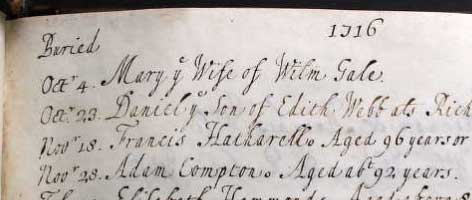 1716
Buried
Octr 4. Mary ye Wife of Willm Gale.
Octr 23. Daniel ye Son of Edith Webb als Rich
Novr 18. Francis Hatharell. Aged 96 years or
Novr 28. Adam Compton. Aged abt 92 years.
Elisabeth Hammonds Aged above 8